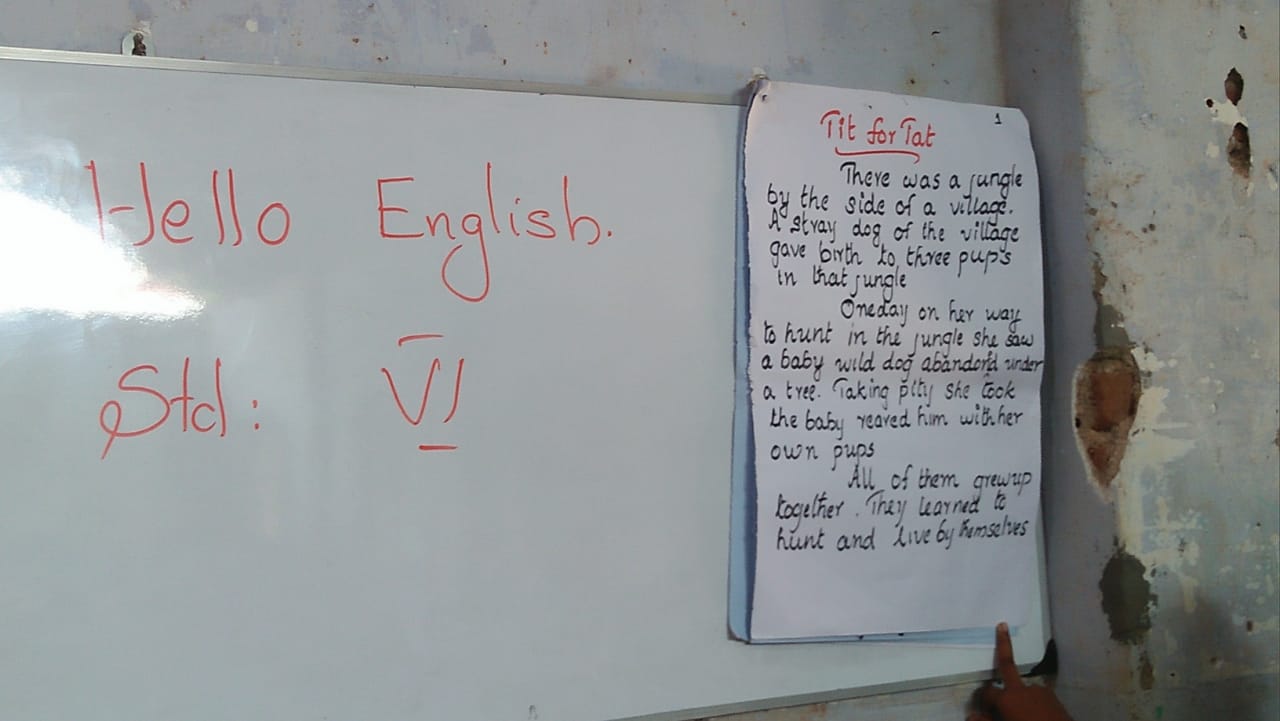 Hello English.
Std: VI
1
Tit for Tat
There was a jungle
by the side of a village.
A stray dog of the village
gave birth to three pups
in that jungle
Oneday on her way
to hunt in the jungle she saw
a baby wild dog abandon'd under
a tree. Taking pity she took
the baby reared him with her
own pups
All of them grewup
together. They learned to
hunt and live by themselves